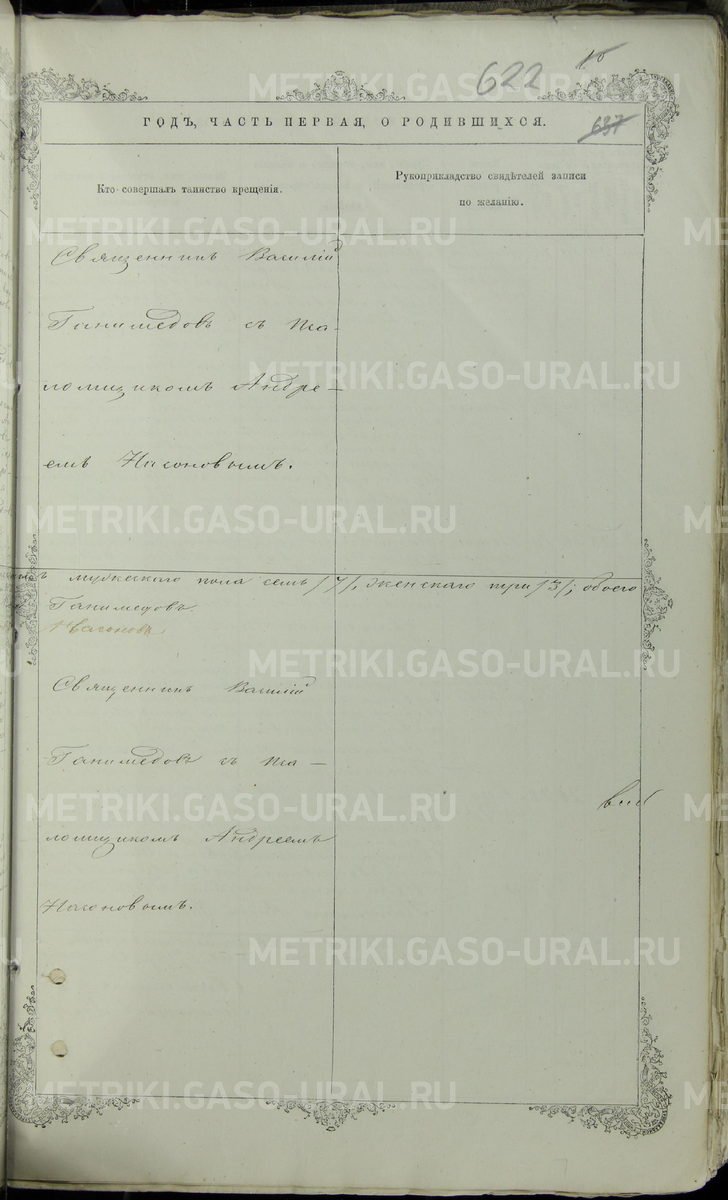 622
637
ГОДЪ, ЧАСТЬ ПЕРВАЯ, О РОДИВШИХСЯ.
Кто совершалъ таинство крещенія.
Рукоприкладство свидѣтелей записи
по желанію.
Священникъ Василій
Ганимедовъ съ пса-
ломщикомъ Андре-
емъ Насоновымъ.
мужескаго пола семь /7/, женскаго три /3/, обоего
Ганимедовъ
Насоновъ
Священникъ Василій
Ганимедовъ съ пса-
ломщикомъ Андреемъ
Насоновымъ.
METRIKI.GASO-URAL.RU